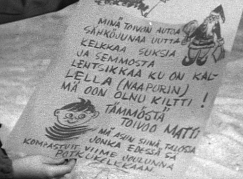 MINÄ TOIVON AUTOA
SÄHKÖJUNAA UUTTA
KELKKAA SUKSIA
JA SEMMOSTA
LENTSIKKAA KU ON KAL-
LELLA (NAAPURIN)
MÄ OON OLNU KILTTI!
TÄMMÖSTÄ
TOIVOO MATTI
MÄ ASUN SIINÄ TALOSA
JONKA EDESSÄ SÄ
KOMPASTUIT VIIME JOULUNNA
POTKUKELKKAAN